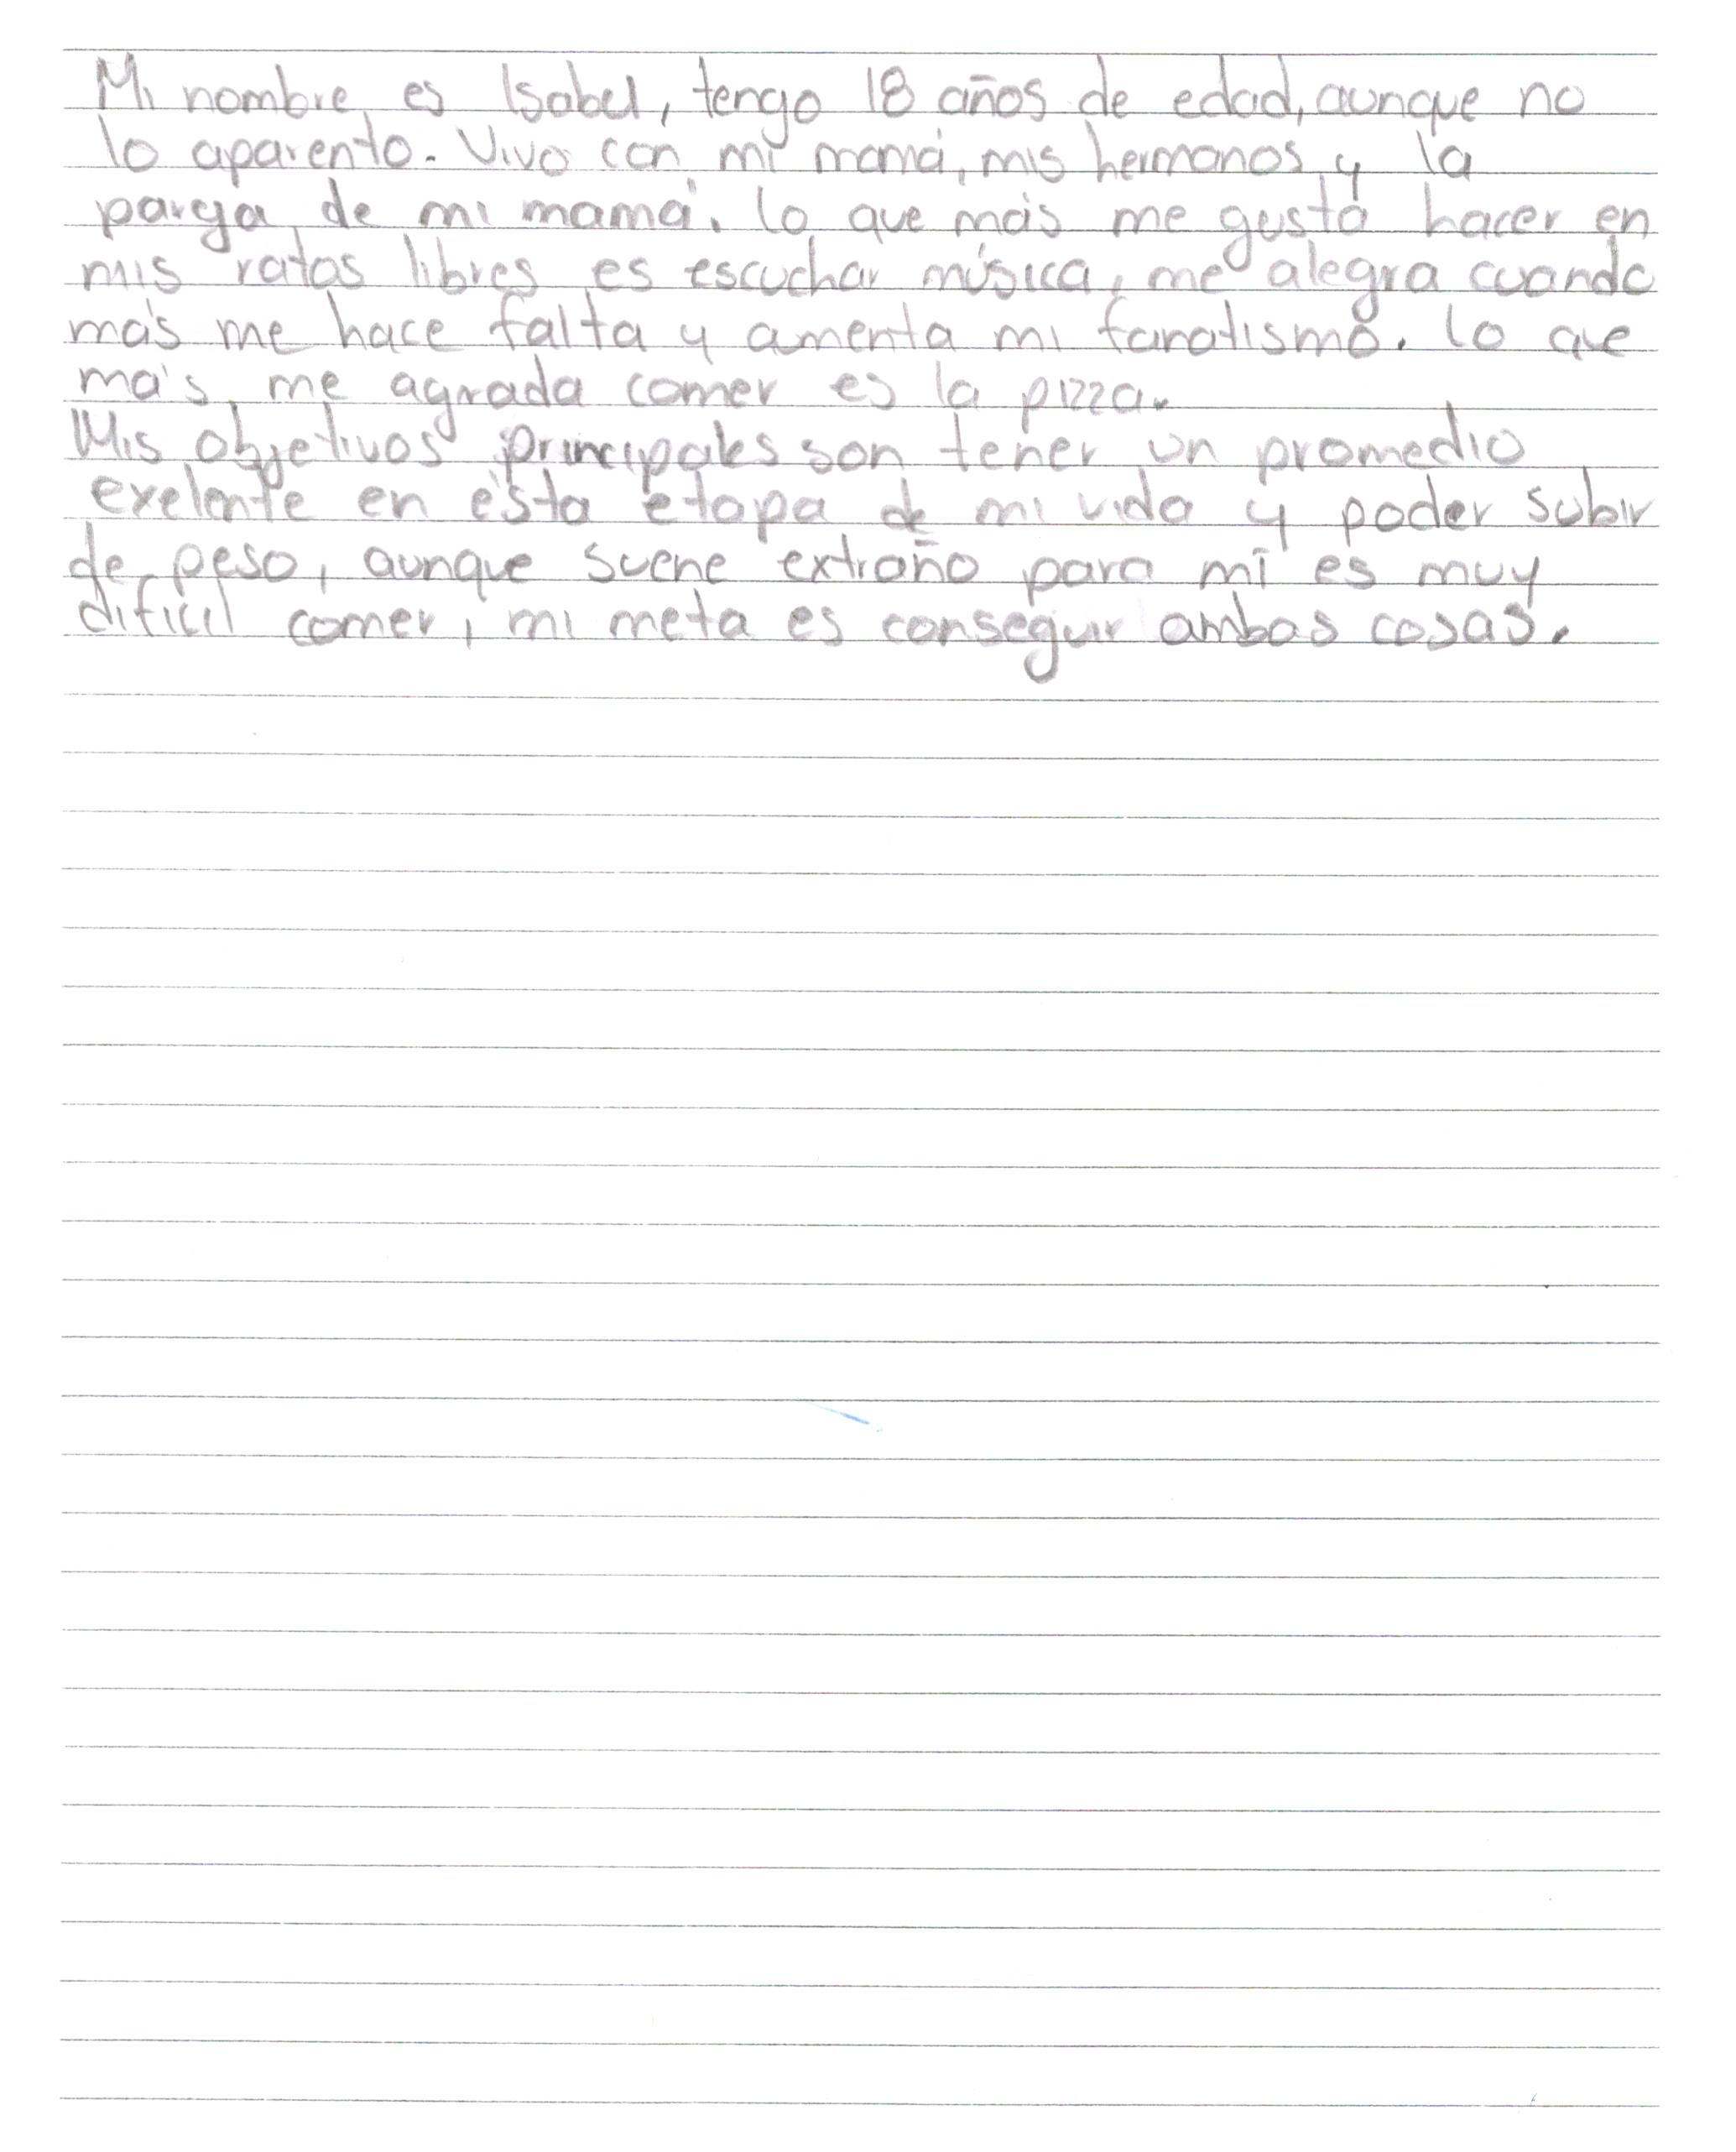 Mi nombre es Isabel, tengo 18 años de edad, aunque no
lo aparento. Vivo con mi mamá, mis hermanos y la
pareja de mi mamá. lo que más me gusta hacer en
mis ratos libres es escuchar música, me alegra cuando
más me hace falta y amenta mi fanatismo. lo que
más me agrada comer es la pizza.
Mis objetivos principales son tener un promedio
exelente en ésta etapa de mi vida y poder subir
de peso, aunque suene extraño para mí es muy
dificil comer, mi meta es conseguir ambas cosas.